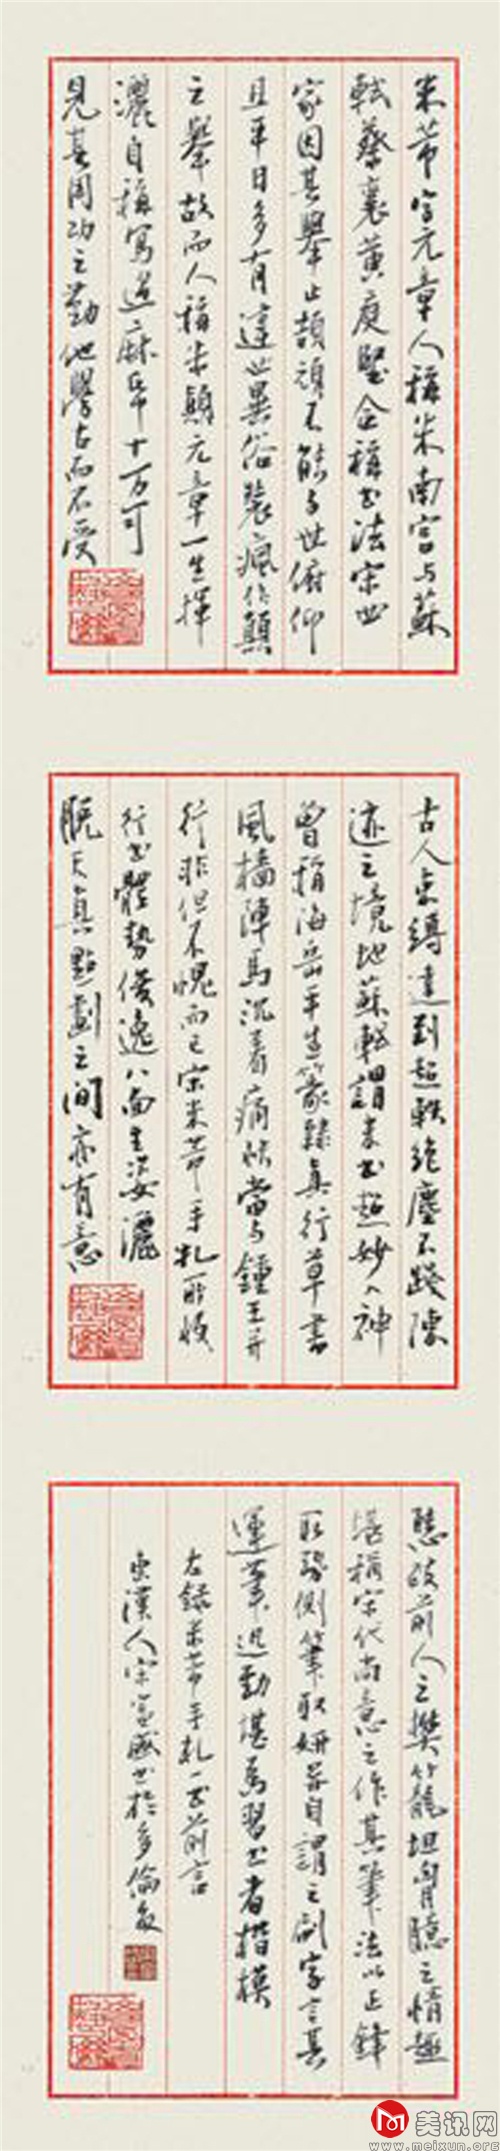 米芾字元章人稱米南宫与蘇
軾蔡襄黄庭堅合稱書法宋四
家因其舉止頡頏不能与世俯仰
且平日多有違世異俗裝瘋作顛
之舉故而人稱米顛元章一生揮
灑自稱寫過麻牋十万可
見其用功之勤他學古而不受
古人束縛達到超軼絶塵不踐陳
迹之境地蘇軾謂米書超妙入神
曾稱海岳平生篆隸真行草書
風檣陣馬沉着痛快當与鍾王并
行非但不愧而已宋米芾手札
行書體勢俊逸八面生姿灑
脱天真點劃之间亦有意
前人之樊籠坦胷臆之情趣
堪稱宋代尚意之作其筆法以正鋒
取勢側筆取妍昔自謂之刷字言其
運筆迅勁堪为習書者楷模
右録米芾手札一書前言
人宋 書於多倫多
美讯网
www.meixun.org